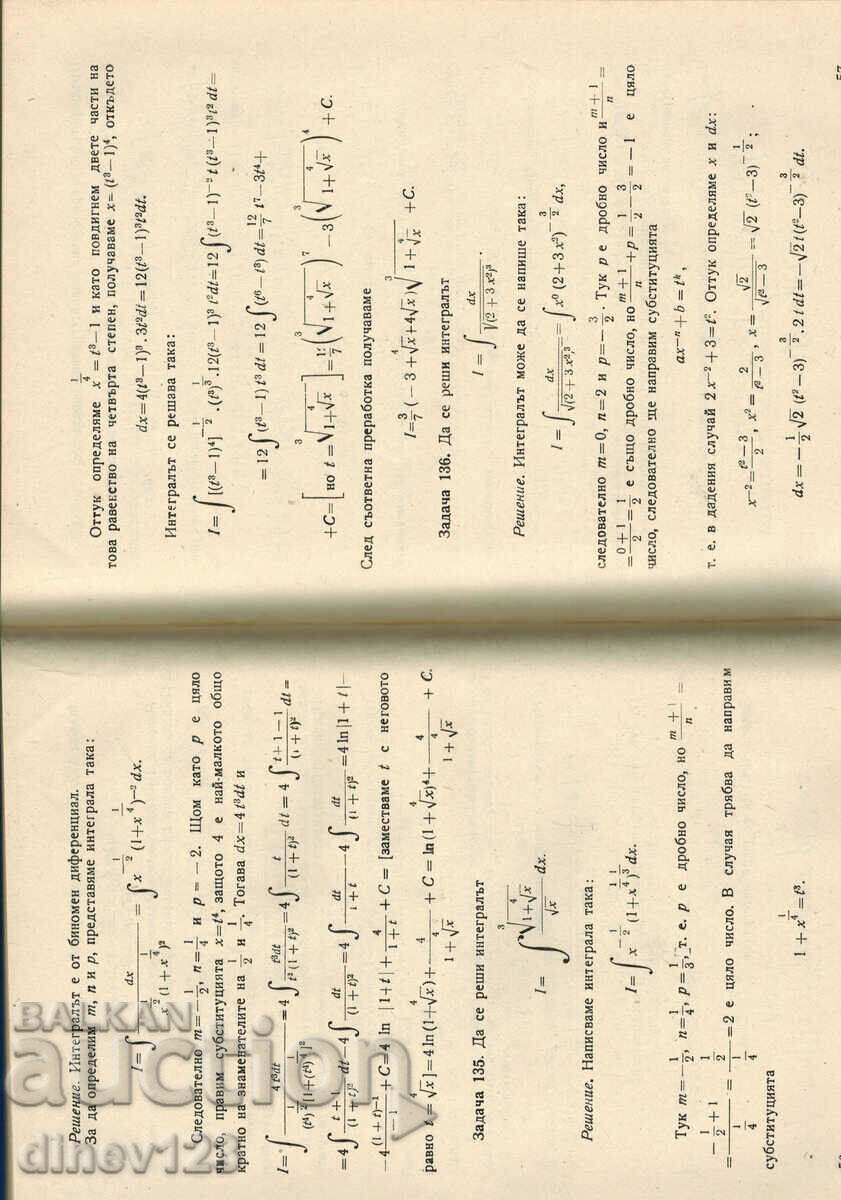 Решение. Интегралът е от биномен диференциал.
За да определим m, n и p, представяме интеграла така:
I = ∫ dx / (x^{1/2} (1+x^{1/4})²) = ∫ x^{-1/2} (1+x^{1/4})^{-2} dx.
Следователно m = -1/2, n = 1/4 и p = -2. Щом като p е цяло
число, правим субституцията x = t⁴, защото 4 е най-малкото общо
кратно на знаменателите на 1/2 и 1/4. Тогава dx = 4t³dt и
I = ∫ 4t³dt / ((t⁴)^{1/2} [1+(t⁴)^{1/4}]²) = 4 ∫ t³dt / (t²(1+t)²) = 4 ∫ t / (1+t)² dt = 4 ∫ (t+1-1) / (1+t)² dt =
= 4 ∫ (t+1) / (1+t)² dt - 4 ∫ dt / (1+t)² = 4 ∫ dt / (1+t) - 4 ∫ dt / (1+t)² = 4 ln|1+t| -
- 4 (1+t)^{-1} / -1 + C = 4 ln |1+t| + 4 / (1+t) + C = [заместваме t с неговото
равно t = ⁴√x] = 4 ln(1+⁴√x) + 4 / (1+⁴√x) + C = ln(1+⁴√x)⁴ + 4 / (1+⁴√x) + C.
Задача 135. Да се реши интегралът
I = ∫ ³√(1+⁴√x) / √x dx.
Решение. Написваме интеграла така:
I = ∫ x^{-1/2} (1+x^{1/4})^{1/3} dx.
Тук m = -1/2, n = 1/4, p = 1/3, т. е. p е дробно число, но (m+1)/n =
= (-1/2 + 1) / (1/4) = (1/2) / (1/4) = 2 е цяло число. В случая трябва да направим
субституцията
1 + x^{1/4} = t³.
Оттук определяме x^{1/4} = t³ - 1 и като повдигнем двете части на
това равенство на четвърта степен, получаваме x = (t³-1)⁴, откъдето
dx = 4(t³-1)³ . 3t²dt = 12(t³-1)³t²dt.
Интегралът се решава така:
I = ∫ [(t³-1)⁴]^{-1/2} . (t³)^{1/3} . 12(t³-1)³ t²dt = 12 ∫ (t³-1)^{-2} t (t³-1)³t² dt =
= 12 ∫ (t³-1) t³ dt = 12 ∫ (t⁶-t³) dt = 12/7 t⁷ - 3t⁴ +
+ C = [но t = ³√(1+⁴√x)] = 12/7 (³√(1+⁴√x))⁷ - 3 (³√(1+⁴√x))⁴ + C.
След съответна преработка получаваме
I = 3/7 (-3 + ⁴√x + 4√x) ³√(1+⁴√x) + C.
Задача 136. Да се реши интегралът
I = ∫ dx / √(2+3x²)³.
Решение. Интегралът може да се напише така:
I = ∫ dx / √(2+3x²)³ = ∫ x⁰ (2+3x²)^{-3/2} dx,
следователно m = 0, n = 2 и p = -3/2. Тук p е дробно число и (m+1)/n =
= (0+1)/2 = 1/2 е също дробно число, но (m+1)/n + p = 1/2 - 3/2 = -1 е цяло
число, следователно ще направим субституцията
ax⁻ⁿ + b = tᵏ,
т. е. в дадения случай 2x⁻² + 3 = t². Оттук определяме x и dx:
x⁻² = (t²-3)/2, x² = 2/(t²-3), x = √2/√(t²-3) = √2 (t²-3)^{-1/2};
dx = -1/2 √2 (t²-3)^{-3/2} . 2t dt = -√2 t (t²-3)^{-3/2} dt.
57
BALKAN
auction
dinev123